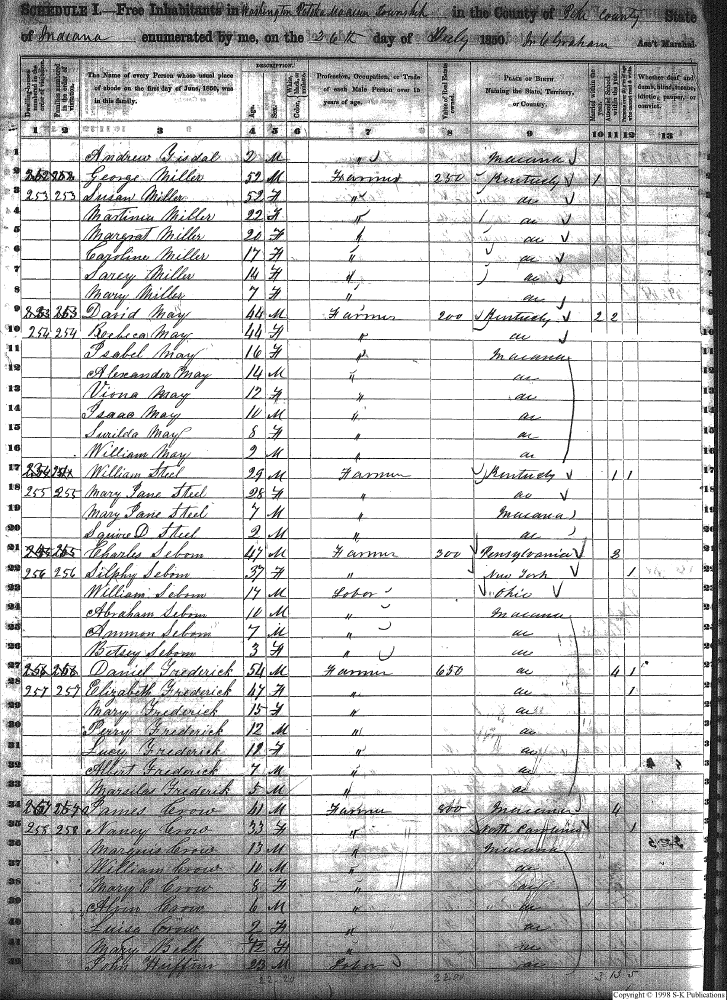 SCHEDULE I.—Free Inhabitants in Washington Township in the County of Pike County State
of Indiana enumerated by me, on the 26th day of July 1850. Graham Ass't Marshal.
Dwelling-houses numbered in the order of visitation.
Families numbered in the order of visitation.
The Name of every Person whose usual place of abode on the first day of June, 1850, was in this family.
DESCRIPTION.
Age.
Sex.
White, black, or mulatto.
Color,
Profession, Occupation, or Trade of each Male Person over 15 years of age.
Value of Real Estate owned.
PLACE OF BIRTH. Naming the State, Territory, or Country.
Married within the year.
Attended School within the year.
Whether deaf and dumb, blind, insane, idiotic, pauper, or convict.
1 2 3 4 5 6 7 8 9 10 11 12 13
1 Andrew Tisdal 2 M " Indiana
2 252 252 George Miller 52 M Farmer 250 Kentucky 1
3 253 253 Susan Miller 52 F " do
4 Martinia Miller 22 F " do
5 Margrat Miller 20 F " do
6 Caroline Miller 17 F " do
7 Sarey Miller 14 F " do
8 Mary Miller 7 F " do
9 253 253 David May 44 M Farmer 200 Kentucky 2 2
10 254 254 Rebeca May 44 F " do
11 Isabel May 16 F " Indiana
12 Alexander May 14 M " do
13 Viona May 12 F " do
14 Isaac May 10 M " do
15 Surilda May 8 F " do
16 William May 2 M " do
17 254 254 William Steel 29 M Farmer Kentucky 1 1
18 255 255 Mary Jane Steel 28 F " do
19 Mary Jane Steel 7 M " Indiana
20 Squire D Steel 2 M " do
21 255 255 Charles Sebom 47 M Farmer 300 Pensylvania 3
22 256 256 Silphy Sebom 37 F " New York 1
23 William Sebom 17 M Labor Ohio
24 Abraham Sebom 10 M " Indiana
25 Ammon Sebom 7 M " do
26 Betsey Sebom 3 F " do
27 256 256 Daniel Frederick 54 M Farmer 650 do 4 1
28 257 257 Elizabeth Frederick 47 F " do 1
29 Mary Frederick 15 F " do
30 Perry Frederick 12 M " do
31 Lucy Frederick F " do
32 Albert Frederick 7 M " do
33 Marsilas Frederick 5 M " do
34 257 257 James Crow 41 M Farmer 800 Indiana 4
35 258 258 Nancy Crow 33 F " North Carolina 1
36 Marquis Crow 13 M " Indiana
37 William Crow 10 M " do
38 Mary E Crow 8 F " do
39 Crow 6 M " do
40 Luisa Crow 2 F " do
41 Mary Belt F " do
42 John 23 M Labor do
2200
Copyright © 1998 S-K Publications